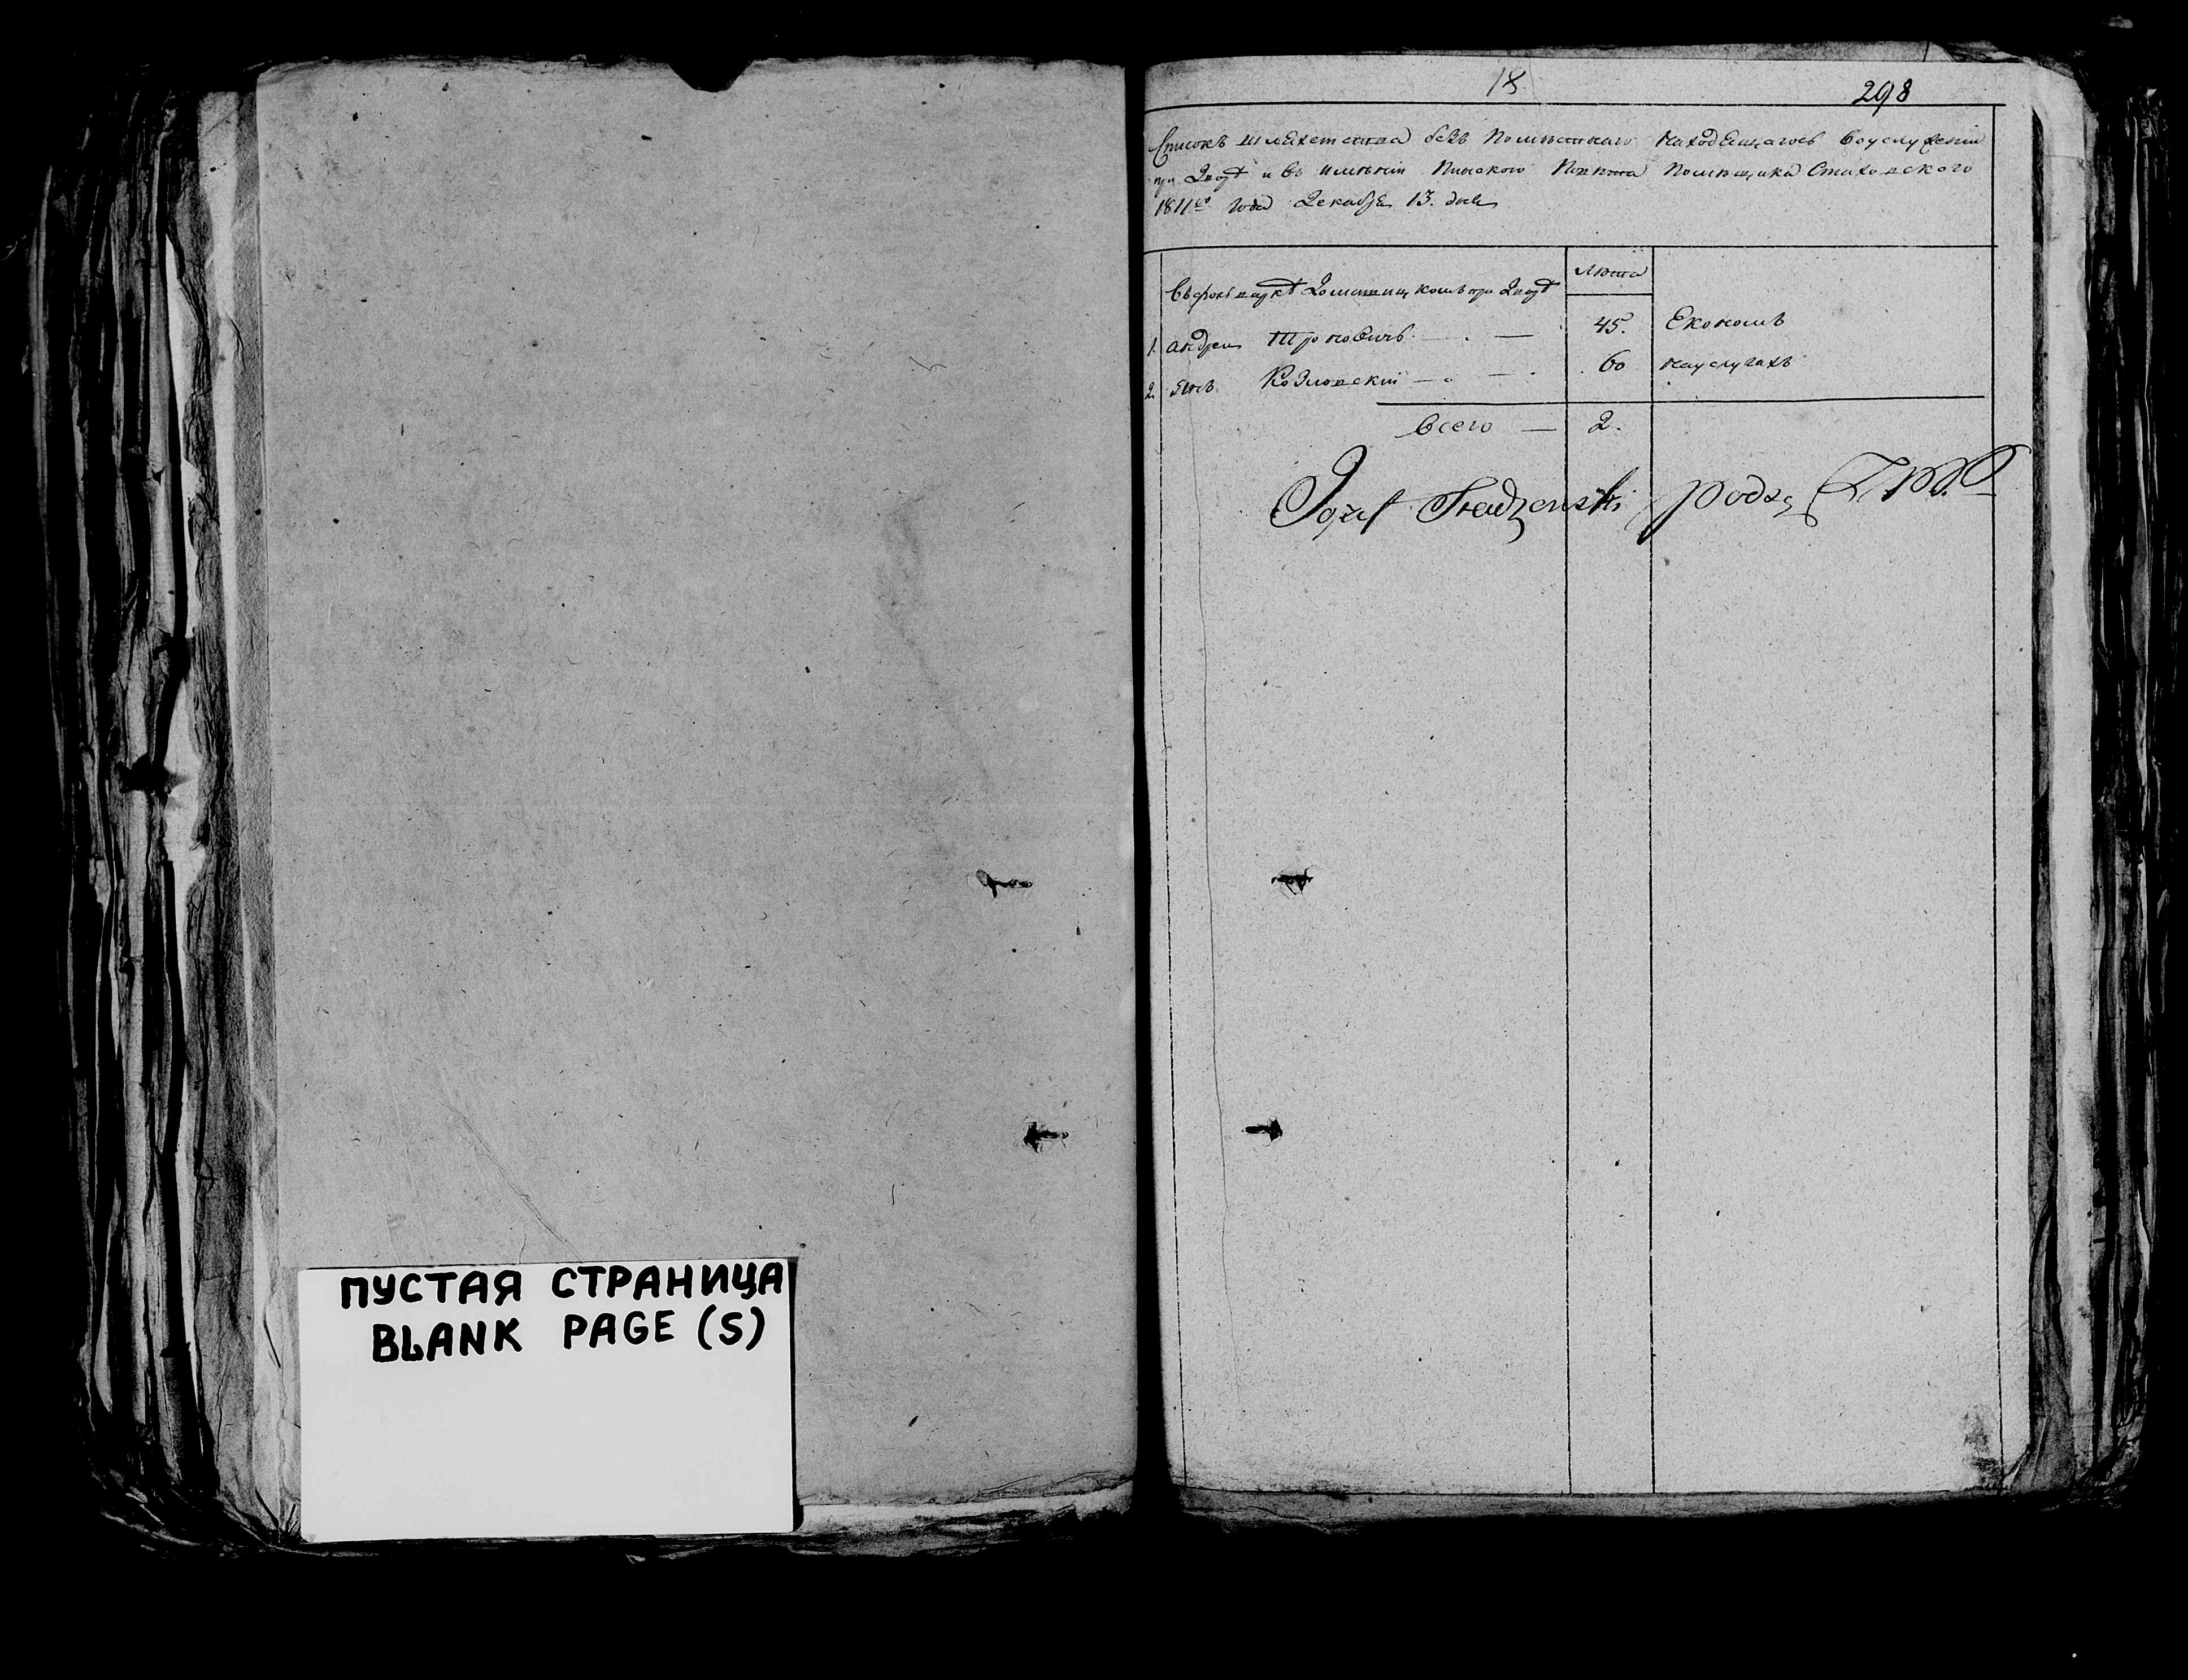 ПУСТАЯ СТРАНИЦА
BLANK PAGE (S)
18
298
Списокъ шляхетства безъ Поместнаго находящагось воуслужении
при Дворѣ и въ имѣнии Пинского Повѣта Помѣщика Стаховского
1811го Года Декабря 13. дня
Лѣта
Домашицкомъ при Дворѣ
1. Андреи 45. Економъ
2. Янъ Козловский 60 науслугахъ
Всего — 2.
Jozef